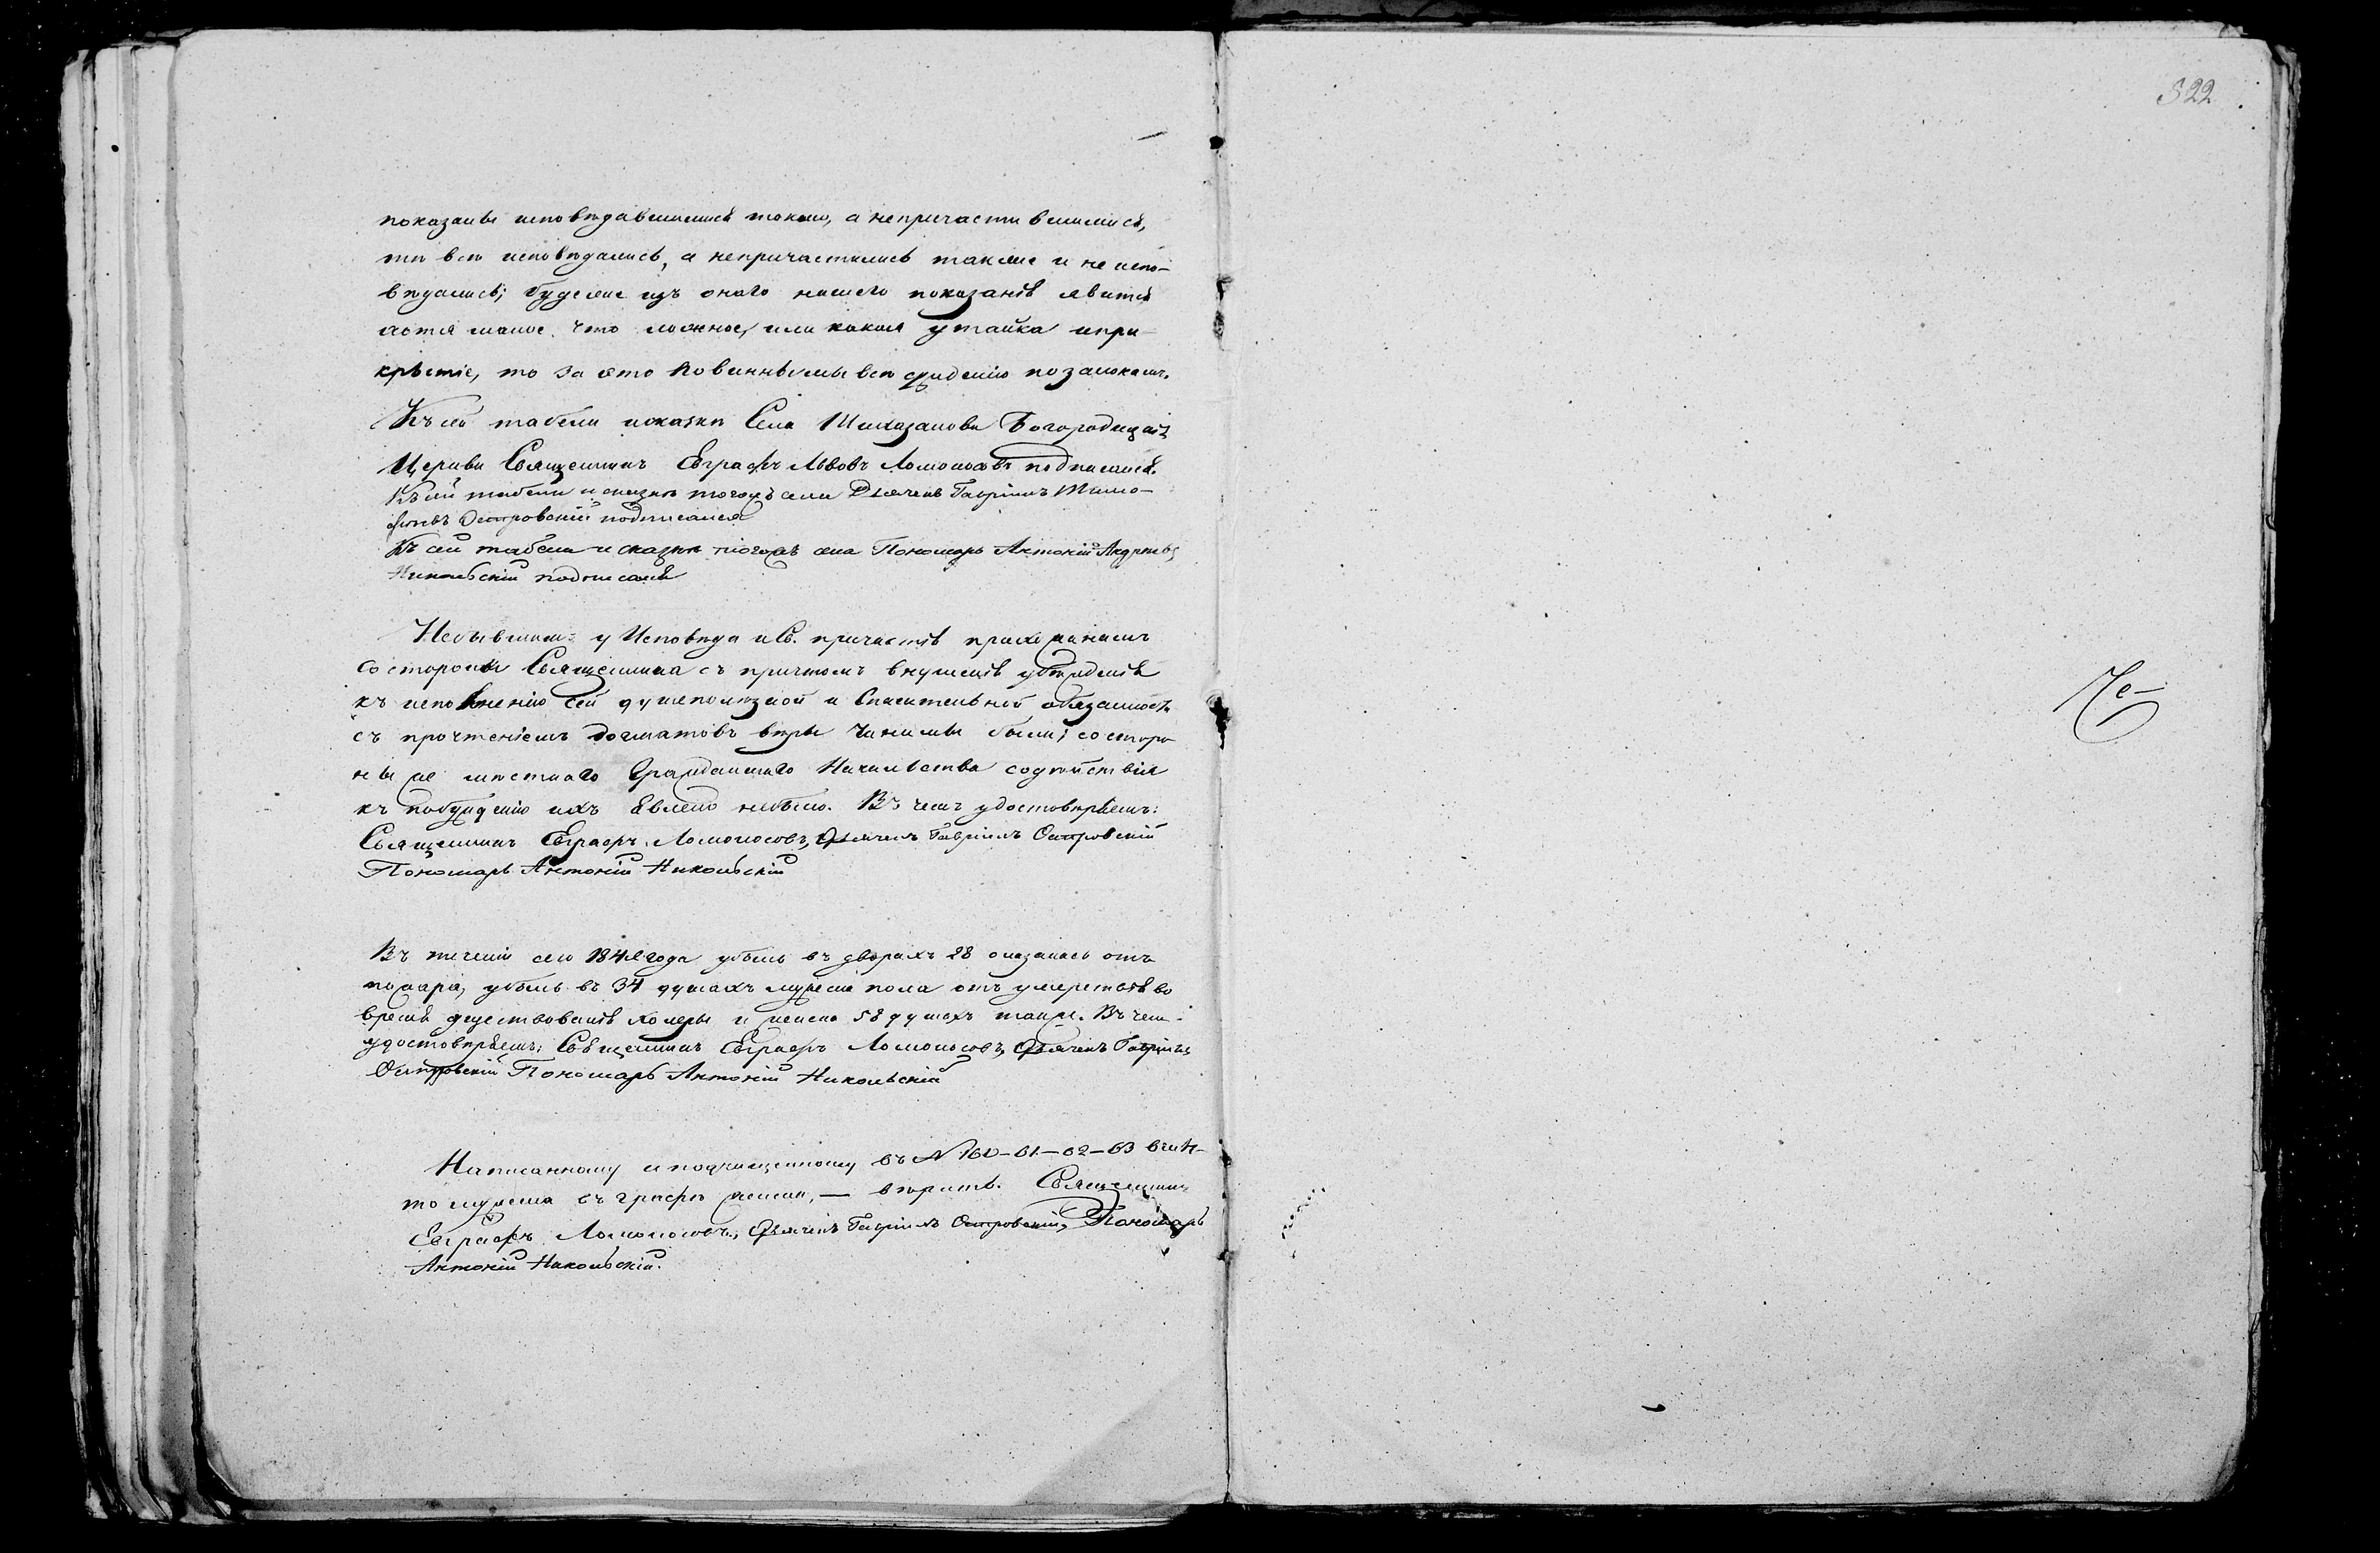 322
показаны исповѣдавшимися токмо, а непричастившимися,
тѣ всѣ исповѣдались, а непричастились также и не испо-
вѣдались; будеже изъ онаго нашего показанія явится
хотя малое что ложное, или какая утайка ипри-
крытіе, то за это повинны мы всѣ сужденію по законамъ.
Къ сей табели исказкѣ Села Шихазанова Богородицкой
Церкви Священникъ Евграфъ Львовъ Ломоносовъ подписался.
Къ сей табели исказкѣ тогожъ села Дьячекъ Гавріилъ Тимо-
фѣевъ Островскій подписался
Къ сей табели и сказкѣ тогожъ села Пономарь Антоній Андреевъ
Никольскій подписался
Небывшимъ у Исповѣди иСв. причастія прихожанамъ
со стороны Священника съ причтомъ внушенія убѣжденія
къ исполненію сей душеполезной и Спасительной обязанности
съ прочтеніемъ догматовъ вѣры чинимы были; со сторо-
ны же мѣстнаго Гражданскаго Начальства содѣйствія
къ побужденію ихъ явлено небыло. Въ чемъ удостовѣряемъ:
Священникъ Евграфъ Ломоносовъ, Дьячекъ Гавріилъ Островскій
Пономарь Антоній Никольскій
Въ теченіи сего 1848 года убыль въ дворахъ 28 оказалась отъ
пожара, убыль въ 34 душахъ мужеска пола отъ умертвія во
время дѣйствованія холеры и женска 58 душахъ также. Въ чемъ
удостовѣряемъ: Священникъ Евграфъ Ломоносовъ, Дьячекъ Гавріилъ
Островскій Пономарь Антоній Никольскій
Написанному и подчищенному въ № 160-61-62-63 вмѣс-
то мужска въ графѣ женска, — вѣрить. Священникъ
Евграфъ Ломоносовъ, Дьячекъ Гавріилъ Островскій, Пономарь
Антоній Никольскій.